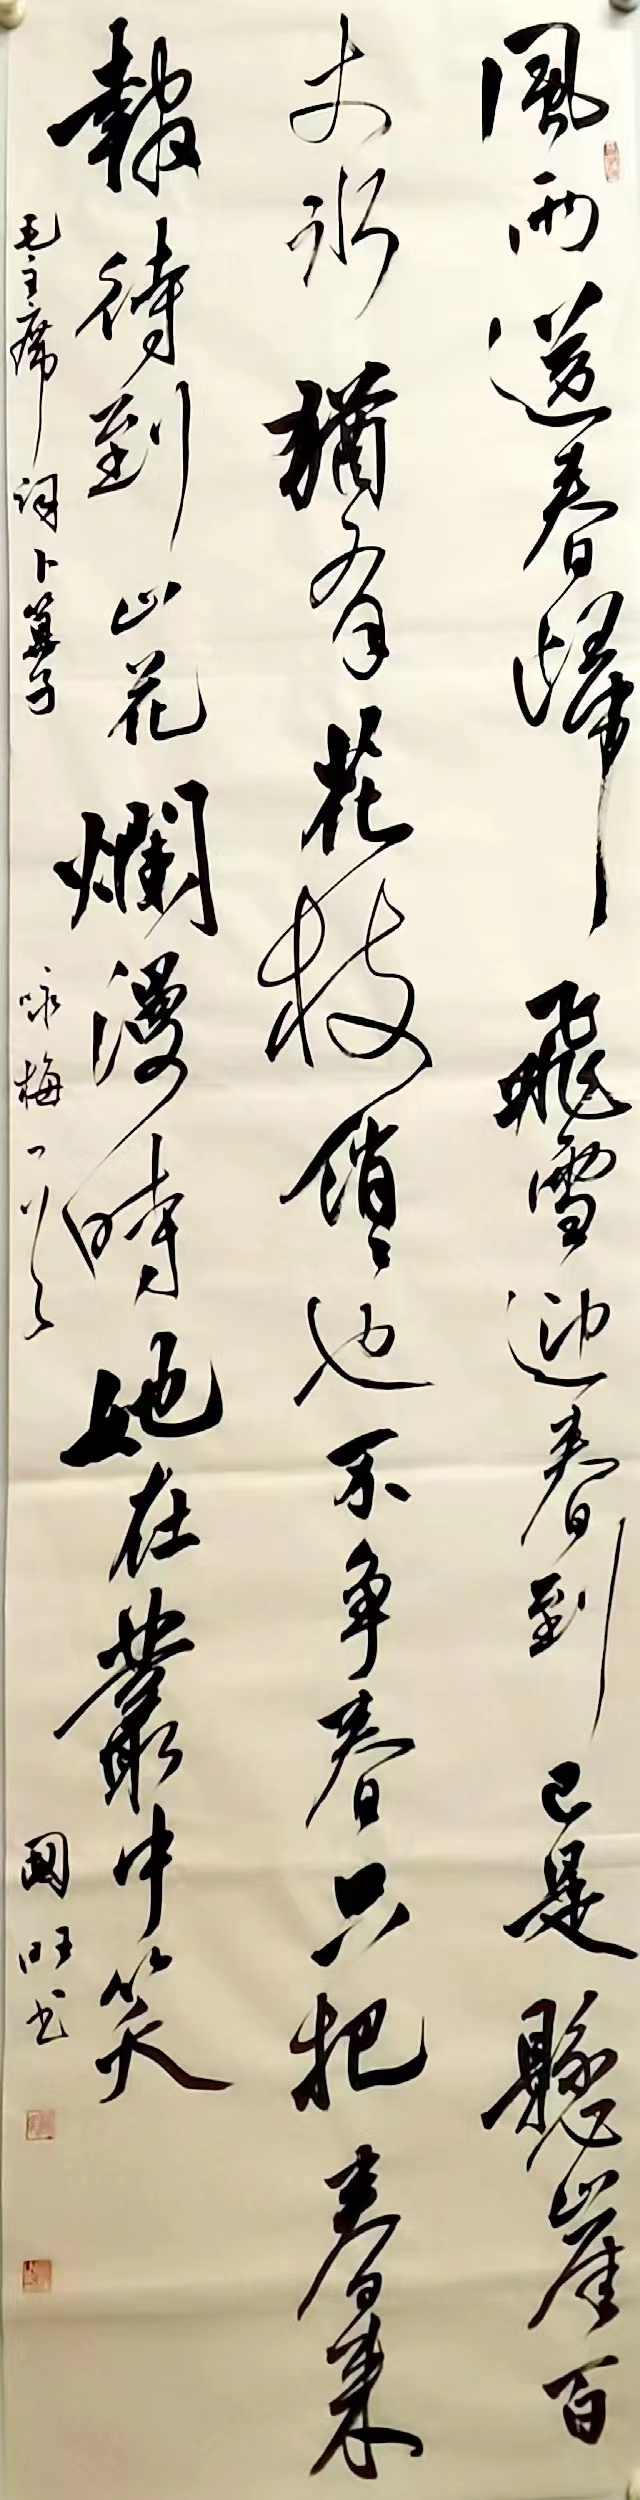 風雨送春歸飛雪迎春到已是懸崖百
丈冰猶有花枝俏々也不争春只把春來
報待到山花爛漫時她在叢中笑
毛主席詞卜算子咏梅一首國旺书